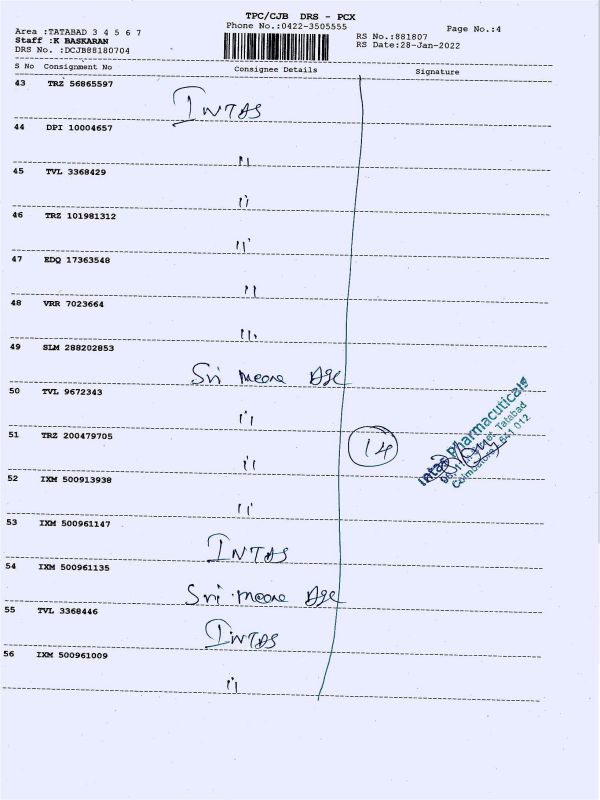 TPC/CJB DRS - PCX
Phone No.:0422-3505555
Page No.:4
Area :TATABAD 3 4 5 6 7
Staff :K BASKARAN
DRS No. :DCJB88180704
RS No.:881807
RS Date:28-Jan-2022
S No Consignment No Consignee Details Signature
43 TRZ 56865597
INTAS
44 DPI 10004657
"
45 TVL 3368429
"
46 TRZ 101981312
"
47 EDQ 17363548
"
48 VRR 7023664
"
49 SLM 288202853
Sri meena Age
50 TVL 9672343
"
51 TRZ 200479705
"
14
Intas Pharmacuticals
Tatabad
Coimbatore 641 012
52 IXM 500913938
"
53 IXM 500961147
INTAS
54 IXM 500961135
Sri meena Age
55 TVL 3368446
INTAS
56 IXM 500961009
"